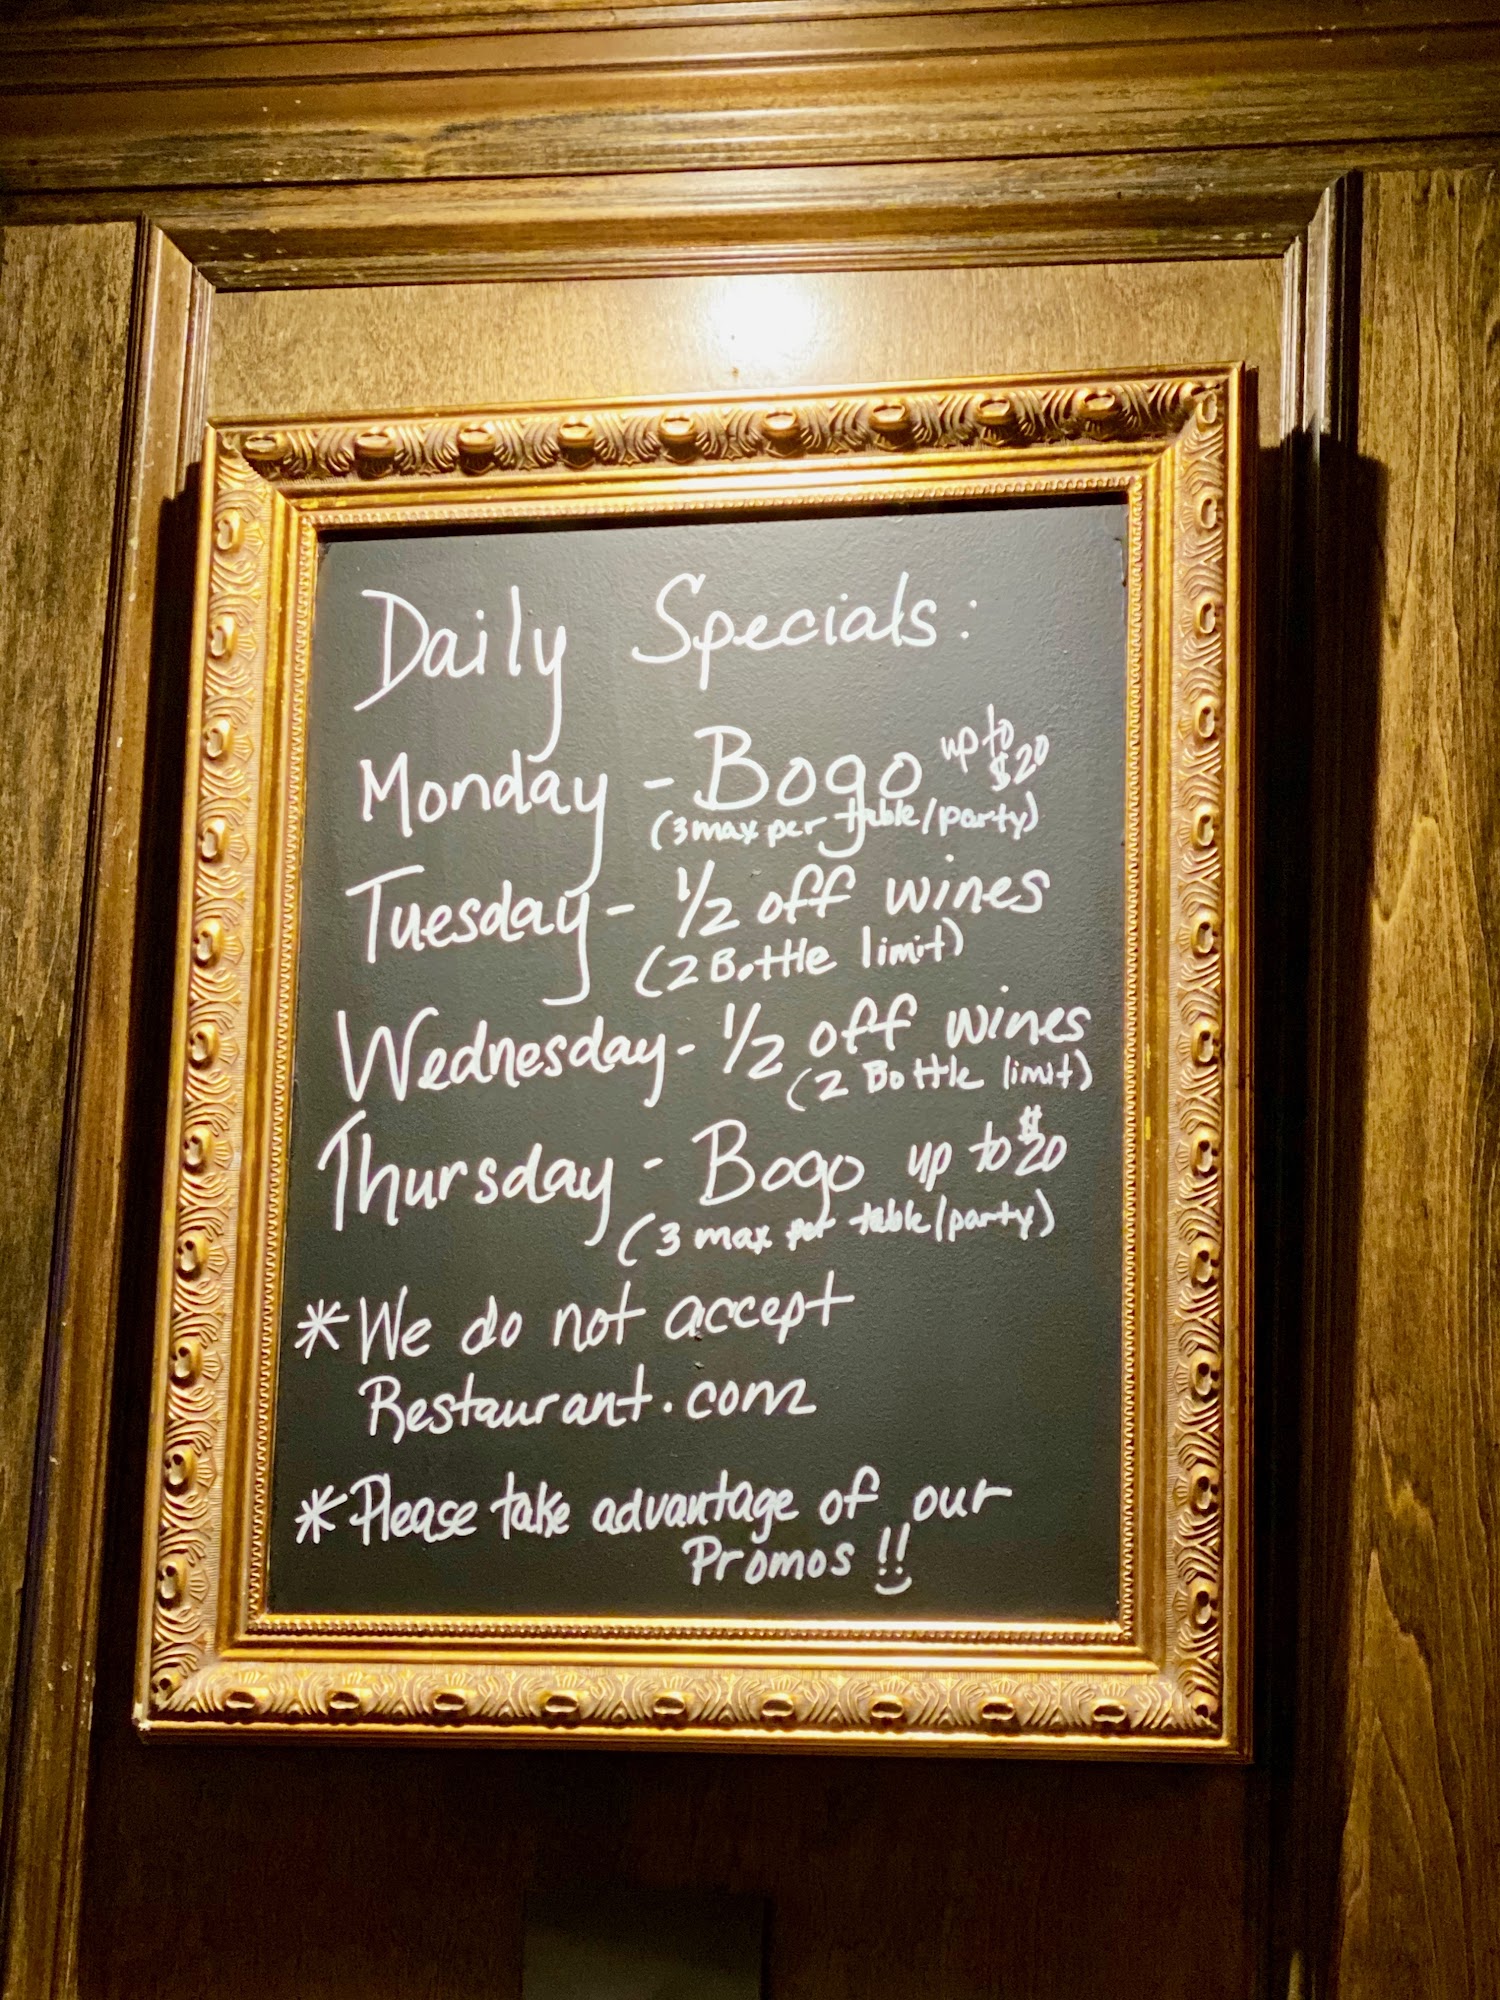 Daily Specials:
Monday - Bogo up to $20
(3 max per table/party)
Tuesday - 1/2 off wines
(2 Bottle limit)
Wednesday - 1/2 off wines
(2 Bottle limit)
Thursday - Bogo up to $20
(3 max per table/party)
* We do not accept
Restaurant.com
* Please take advantage of our
Promos !!